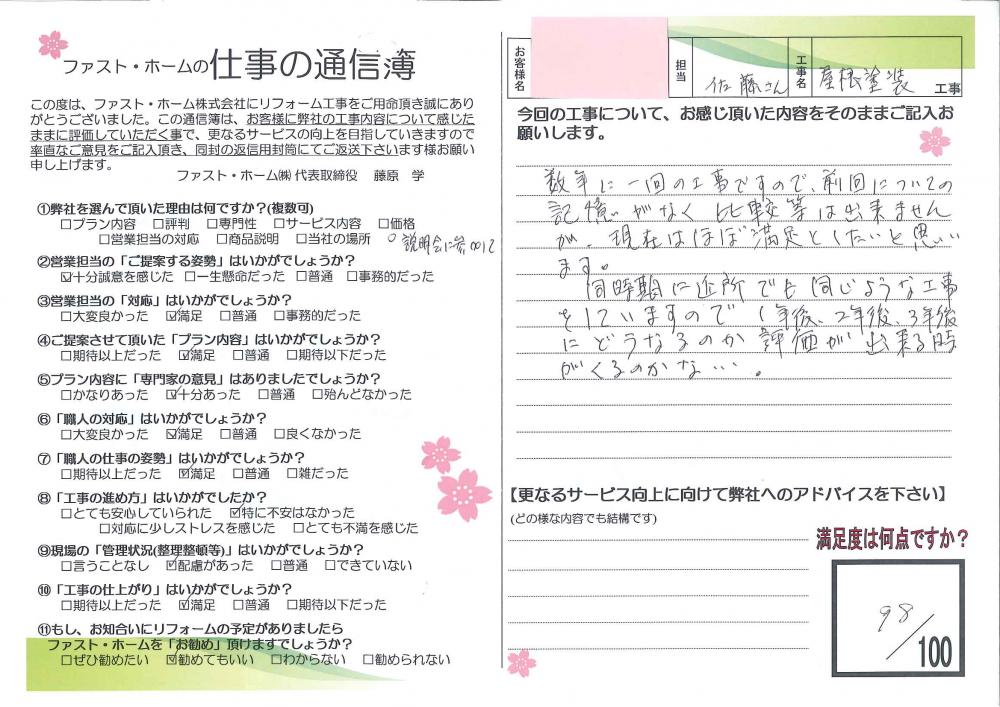 ファスト・ホームの仕事の通信簿
この度は、ファスト・ホーム株式会社にリフォーム工事をご用命頂き誠にあり
がとうございました。この通信簿は、お客様に弊社の工事内容について感じた
ままに評価していただく事で、更なるサービスの向上を目指していきますので
率直なご意見をご記入頂き、同封の返信用封筒にてご返送下さいます様お願い
申し上げます。
ファスト・ホーム㈱ 代表取締役 藤原 学
①弊社を選んで頂いた理由は何ですか?(複数可)
□プラン内容 □評判 □専門性 □サービス内容 □価格
□営業担当の対応 □商品説明 □当社の場所 ○説明会に参加して
②営業担当の「ご提案する姿勢」はいかがでしょうか?
☑十分誠意を感じた □一生懸命だった □普通 □事務的だった
③営業担当の「対応」はいかがでしょうか?
□大変良かった ☑満足 □普通 □事務的だった
④ご提案させて頂いた「プラン内容」はいかがでしょうか?
□期待以上だった ☑満足 □普通 □期待以下だった
⑤プラン内容に「専門家の意見」はありましたでしょうか?
□かなりあった ☑十分あった □普通 □殆んどなかった
⑥「職人の対応」はいかがでしょうか?
□大変良かった ☑満足 □普通 □良くなかった
⑦「職人の仕事の姿勢」はいかがでしょうか?
□期待以上だった ☑満足 □普通 □雑だった
⑧「工事の進め方」はいかがでしたか?
□とても安心していられた ☑特に不安はなかった
□対応に少しストレスを感じた □とても不満を感じた
⑨現場の「管理状況(整理整頓等)」はいかがでしょうか?
□言うことなし ☑配慮があった □普通 □できていない
⑩「工事の仕上がり」はいかがでしょうか?
□期待以上だった ☑満足 □普通 □期待以下だった
⑪もし、お知合いにリフォームの予定がありましたら
ファスト・ホームを「お勧め」頂けますでしょうか?
□ぜひ勧めたい ☑勧めてもいい □わからない □勧められない
お客様名 担当 佐藤さん 工事名 屋根塗装 工事
今回の工事について、お感じ頂いた内容をそのままご記入お
願いします。
数年に一回の工事ですので、前回についての
記憶がなく比較等は出来ません
が、現在はほぼ満足としたいと思い
ます。
同時期に近所でも同じような工事
をしていますので1年後、2年後、3年後
にどうなるのか評価が出来る時
がくるのかな…。
【更なるサービス向上に向けて弊社へのアドバイスを下さい】
(どの様な内容でも結構です)
満足度は何点ですか?
98/100